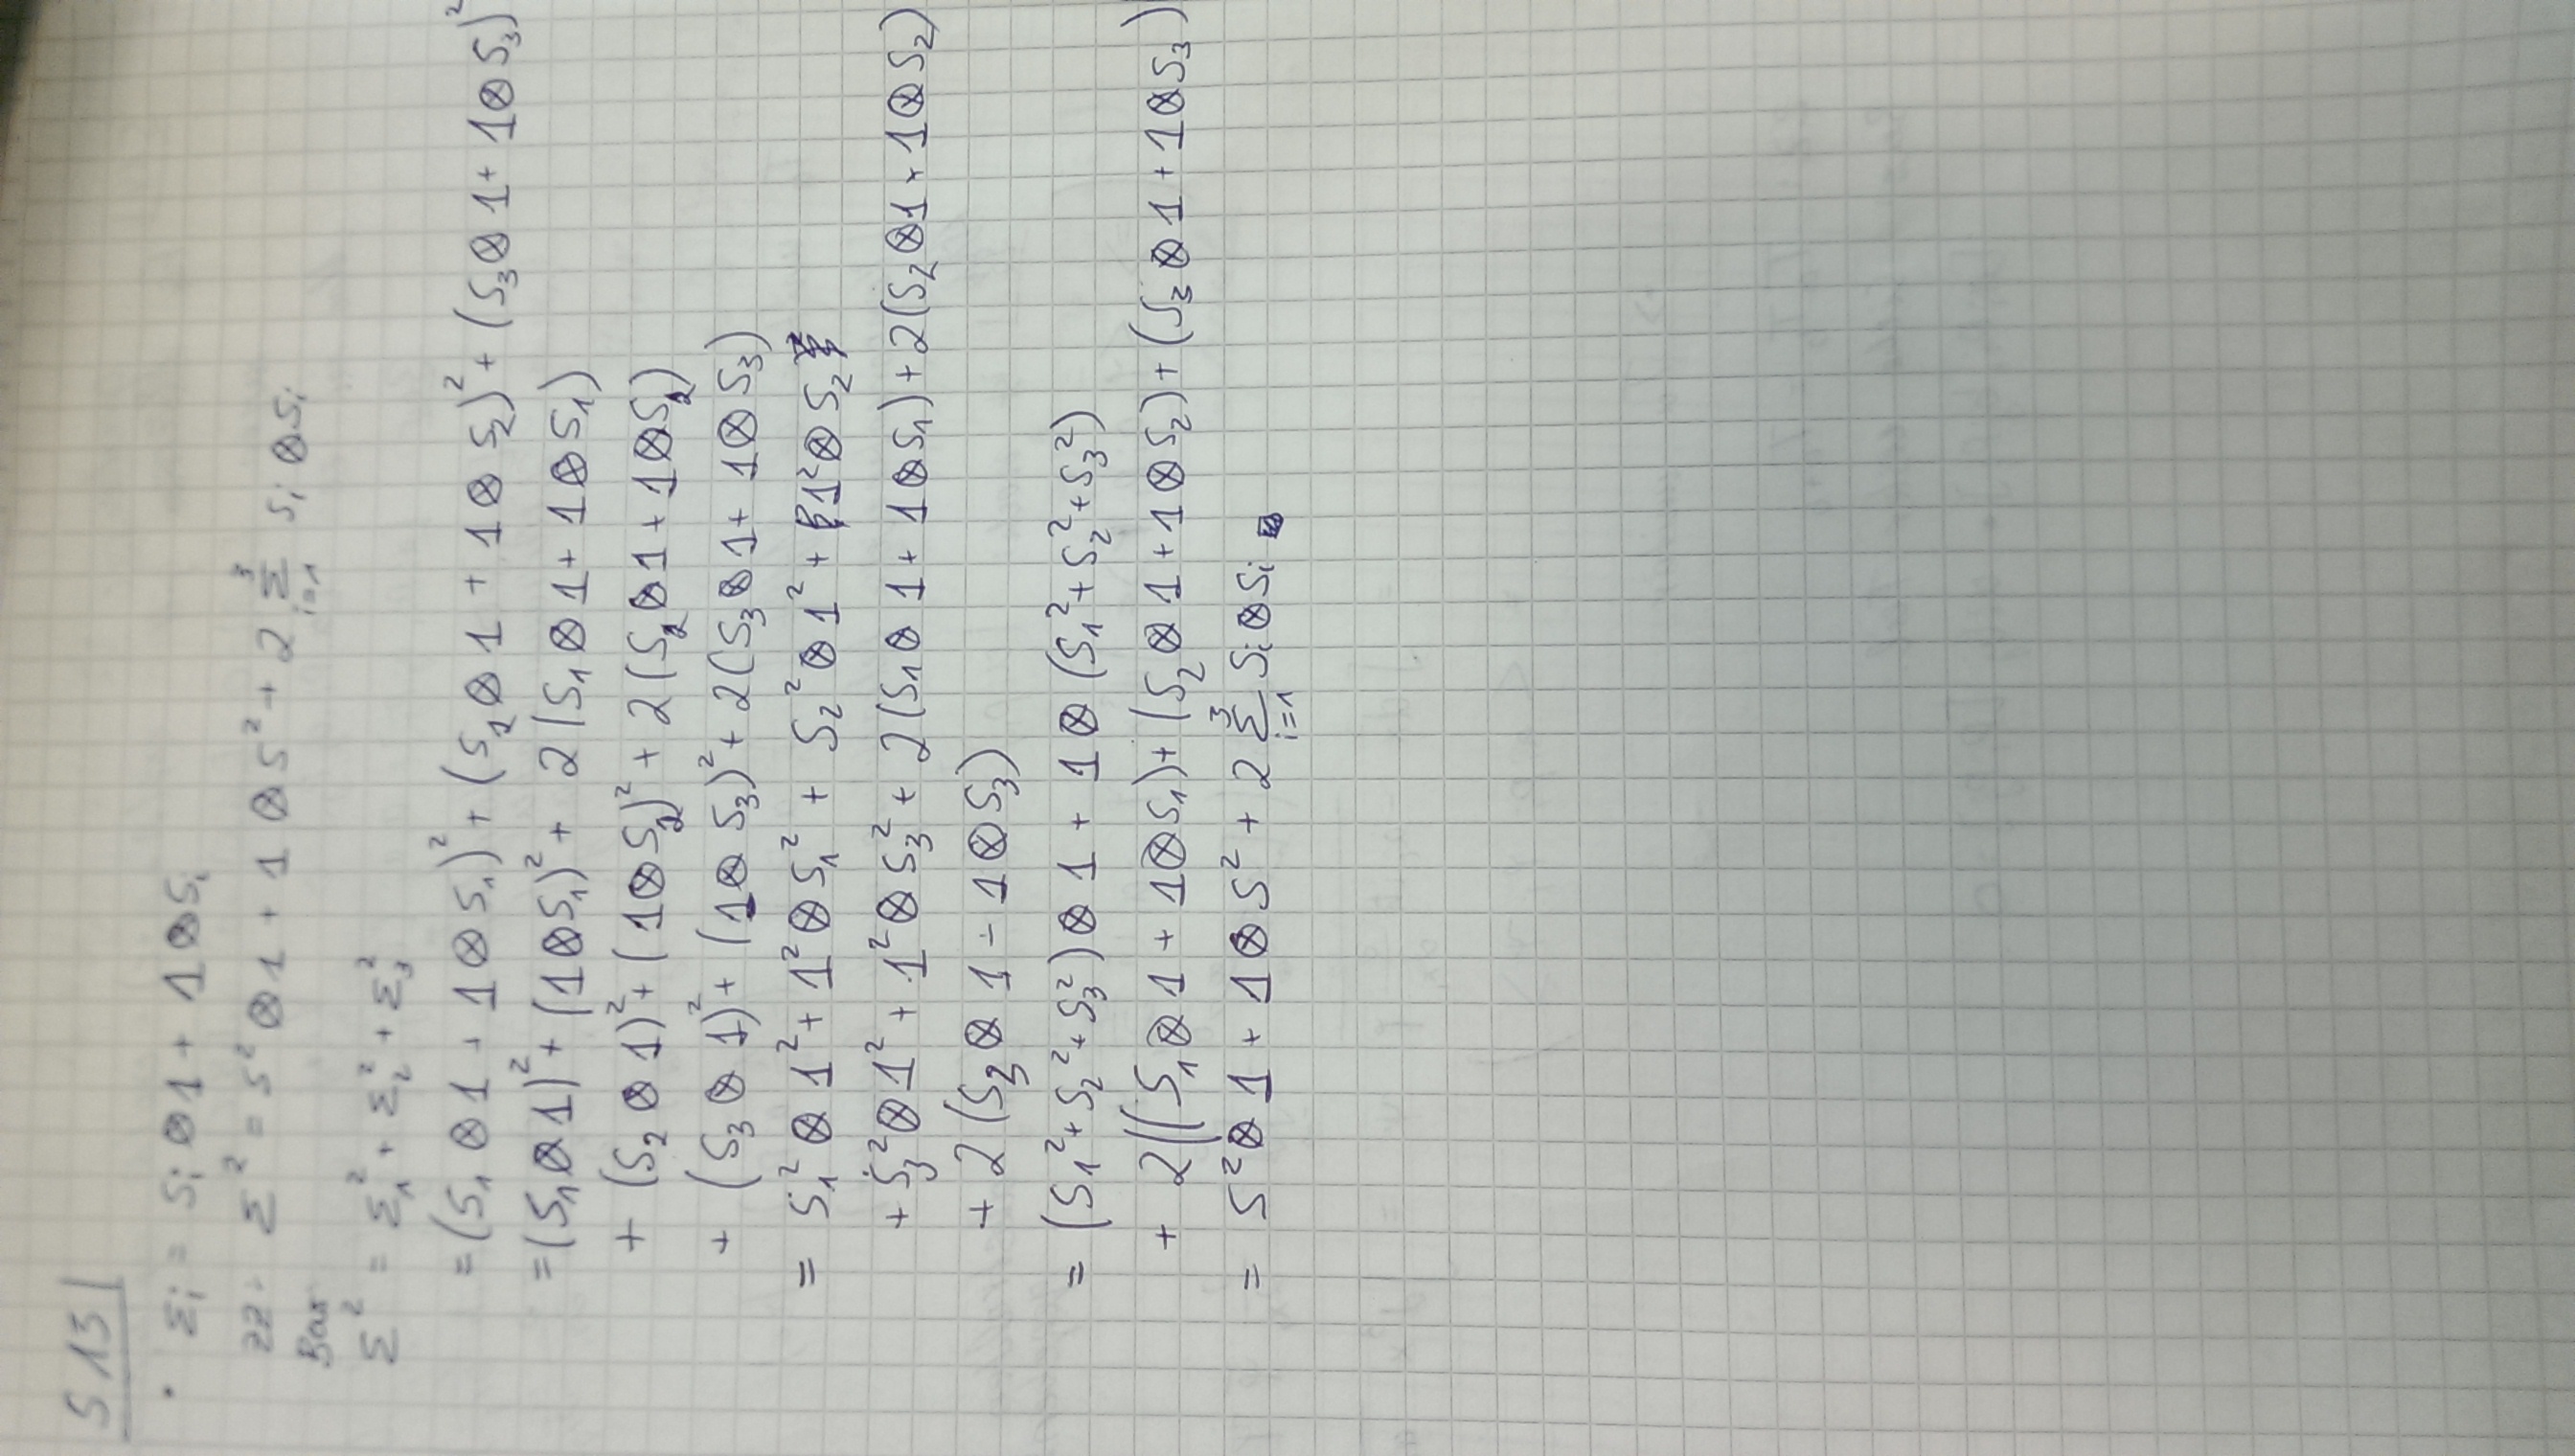 S 13
• Σᵢ = Sᵢ ⊗ 1 + 1 ⊗ Sᵢ
zz. Σ² = S² ⊗ 1 + 1 ⊗ S² + 2 Σ³ᵢ₌₁ Sᵢ ⊗ Sᵢ
Σ² = Σ₁² + Σ₂² + Σ₃²
= (S₁ ⊗ 1 + 1 ⊗ S₁)² + (S₂ ⊗ 1 + 1 ⊗ S₂)² + (S₃ ⊗ 1 + 1 ⊗ S₃)²
= (S₁ ⊗ 1)² + (1 ⊗ S₁)² + 2 (S₁ ⊗ 1 + 1 ⊗ S₁)
+ (S₂ ⊗ 1)² + (1 ⊗ S₂)² + 2 (S₂ ⊗ 1 + 1 ⊗ S₂)
+ (S₃ ⊗ 1)² + (1 ⊗ S₃)² + 2 (S₃ ⊗ 1 + 1 ⊗ S₃)
= S₁² ⊗ 1² + 1² ⊗ S₁² + S₂² ⊗ 1² + 1² ⊗ S₂²
+ S₃² ⊗ 1² + 1² ⊗ S₃² + 2 (S₁ ⊗ 1 + 1 ⊗ S₁) + 2 (S₂ ⊗ 1 + 1 ⊗ S₂)
+ 2 (S₃ ⊗ 1 ÷ 1 ⊗ S₃)
= (S₁² + S₂² + S₃²) ⊗ 1 + 1 ⊗ (S₁² + S₂² + S₃²)
+ 2((S₁ ⊗ 1 + 1 ⊗ S₁) + (S₂ ⊗ 1 + 1 ⊗ S₂) + (S₃ ⊗ 1 + 1 ⊗ S₃)
= S² ⊗ 1 + 1 ⊗ S² + 2 Σ³ᵢ₌₁ Sᵢ ⊗ Sᵢ